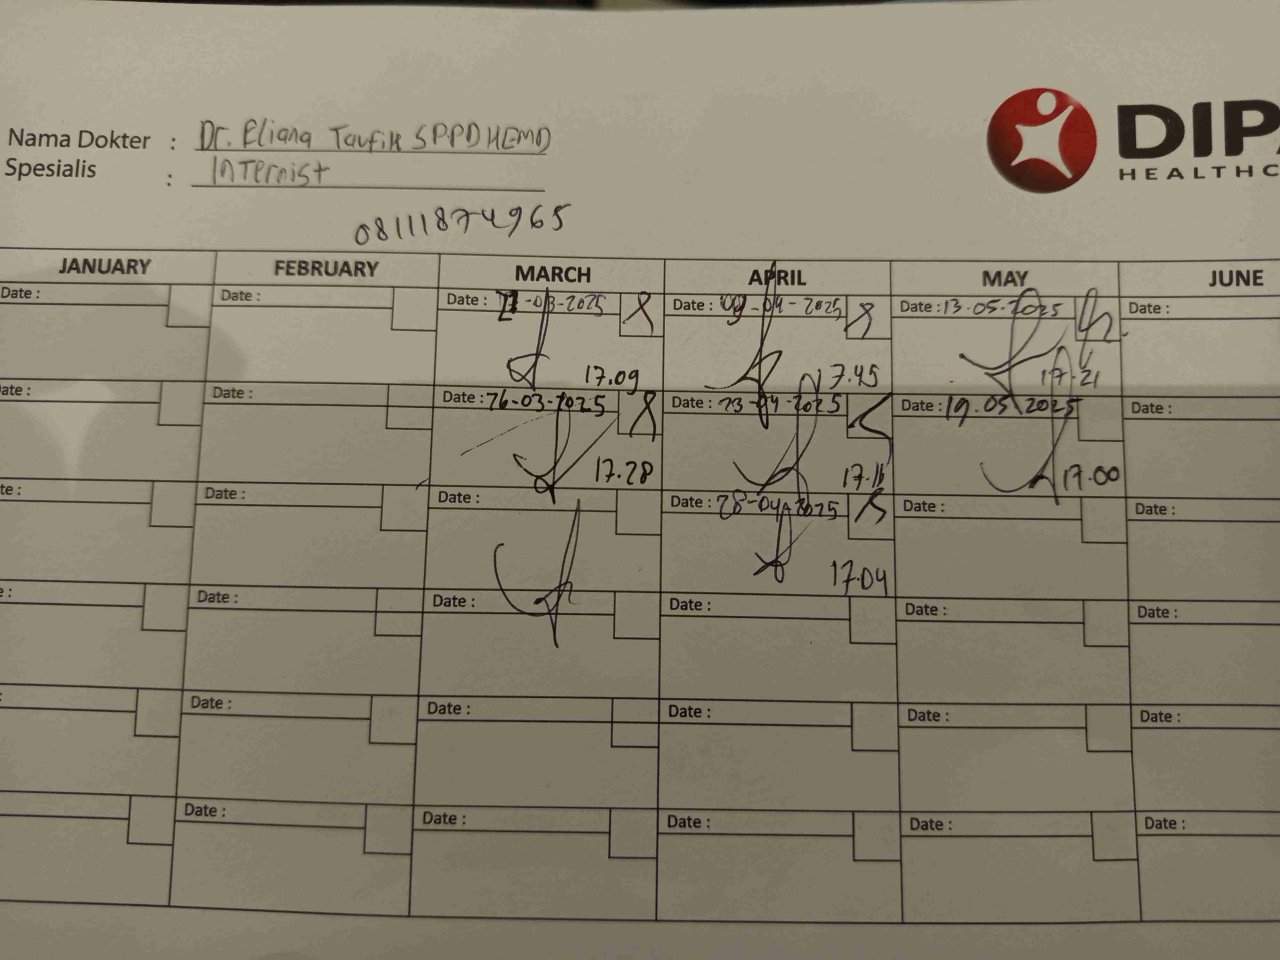 Nama Dokter : Dr. Eliana Taufik SPPDHEMD
Spesialis : Internist
DIPA
HEALTHC
08111874965
JANUARY FEBRUARY MARCH APRIL MAY JUNE
Date : Date : Date : -03-2025 Date : 09-04-2025 Date : 13.05.2025 Date :
17.09 17.45 17.21
ate : Date : Date : 26-03-2025 Date : 23-04-2025 Date : 19.05.2025 Date :
17.28 17.11 17.00
te : Date : Date : Date : 28-04-2025 Date : Date :
17.04
e : Date : Date : Date : Date : Date :
: Date : Date : Date : Date : Date :
Date : Date : Date : Date : Date :